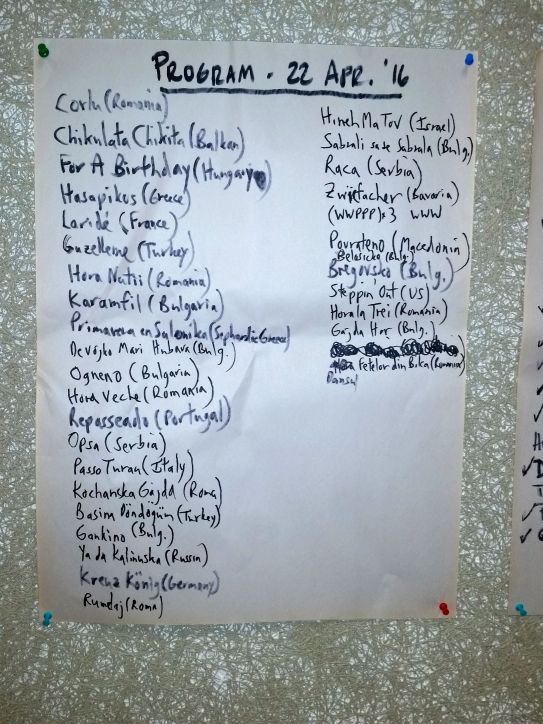 PROGRAM - 22 APR. '16
Corlu (Romania)
Chikulata Chikita (Balkan)
For A Birthday (Hungary)
Hasapikos (Greece)
Laridé (France)
Guzelleme (Turkey)
Hora Nutii (Romania)
Karamfil (Bulgaria)
Primavera en Salonika (Sephardic Greece)
Devojko Mari Hubava (Bulg.)
Ogneno (Bulgaria)
Hora Veche (Romania)
Repasseado (Portugal)
Opsa (Serbia)
Passo Turan (Italy)
Kochanska Gajda (Roma)
Basina Döndögüm (Turkey)
Gankino (Bulg.)
Ya da Kalinuska (Russia)
Kreuz König (Germany)
Rumelaj (Roma)
Hineh Ma Tov (Israel)
Sabrali sa se Sabrala (Bulg.)
Raca (Serbia)
Zwiefacher (Bavaria)
(WWPPP)x3 WWW
Povrateno (Macedonia)
Belasicka (Bulg.)
Bregovsko (Bulg.)
Steppin' Out (US)
Hora la Trei (Romania)
Gajda Hor. (Bulg.)
Fetelor din Bika (Romania)
Dansul